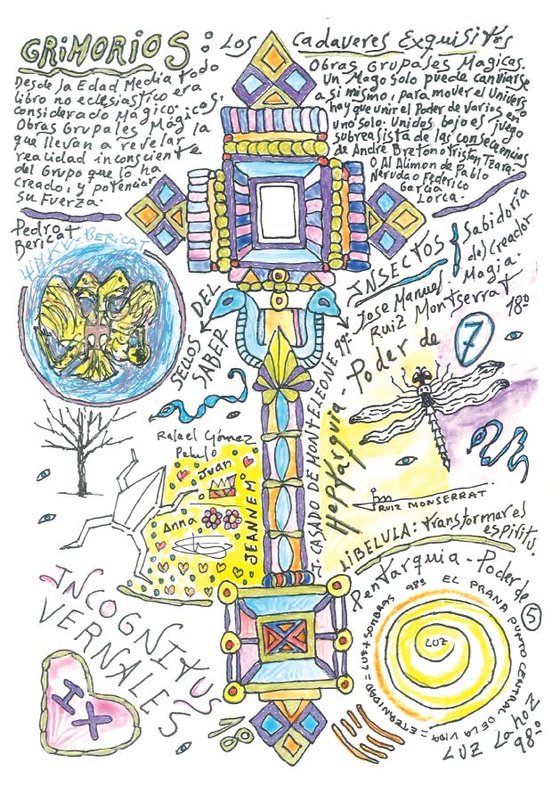 GRIMORIOS:
Los Cadaveres Exquisitos
Desde la Edad Media todo
libro no eclesiastico era
considerado Mágico.
Obras Grupales Magicas,
que llevan a revelar la
realidad inconsciente
del Grupo que lo ha
creado, y potenciar
su Fuerza.
Obras Grupales Magicas.
Un Mago solo puede cambiarse
a si mismo, para mover el Universo
hay que unir el Poder de varios en
uno solo, Unidos bajo es juego
subrealista de las consecuencias
de André Breton o Tristan Tzara.
O Al Alimon de Pablo
Neruda o Federico
Garcia
Lorca.
Pedro
Bericat
BERICAT
SELLOS DEL
SABER
INSECTOS
Sabiduria
del Creador
Magia
Jose Manuel
Ruiz Montserrat
18º
99º
Heptarquia-Poder de
7
J. CASADO DE MONTELEONE
Rafael Gómez
Juan
Anna
JEANNE
RUIZ MONSERRAT
LiBELULA: Transformar es
espiritu.
Pentarquia-Poder de
5
98º EL PRANA PUNTO CENTRAL DE LA VIDA = ETERNIDAD = LUZ + SOMBRAS
LUZ
INCOGNITUS
VERNALES
18
IX
LUZ
98º